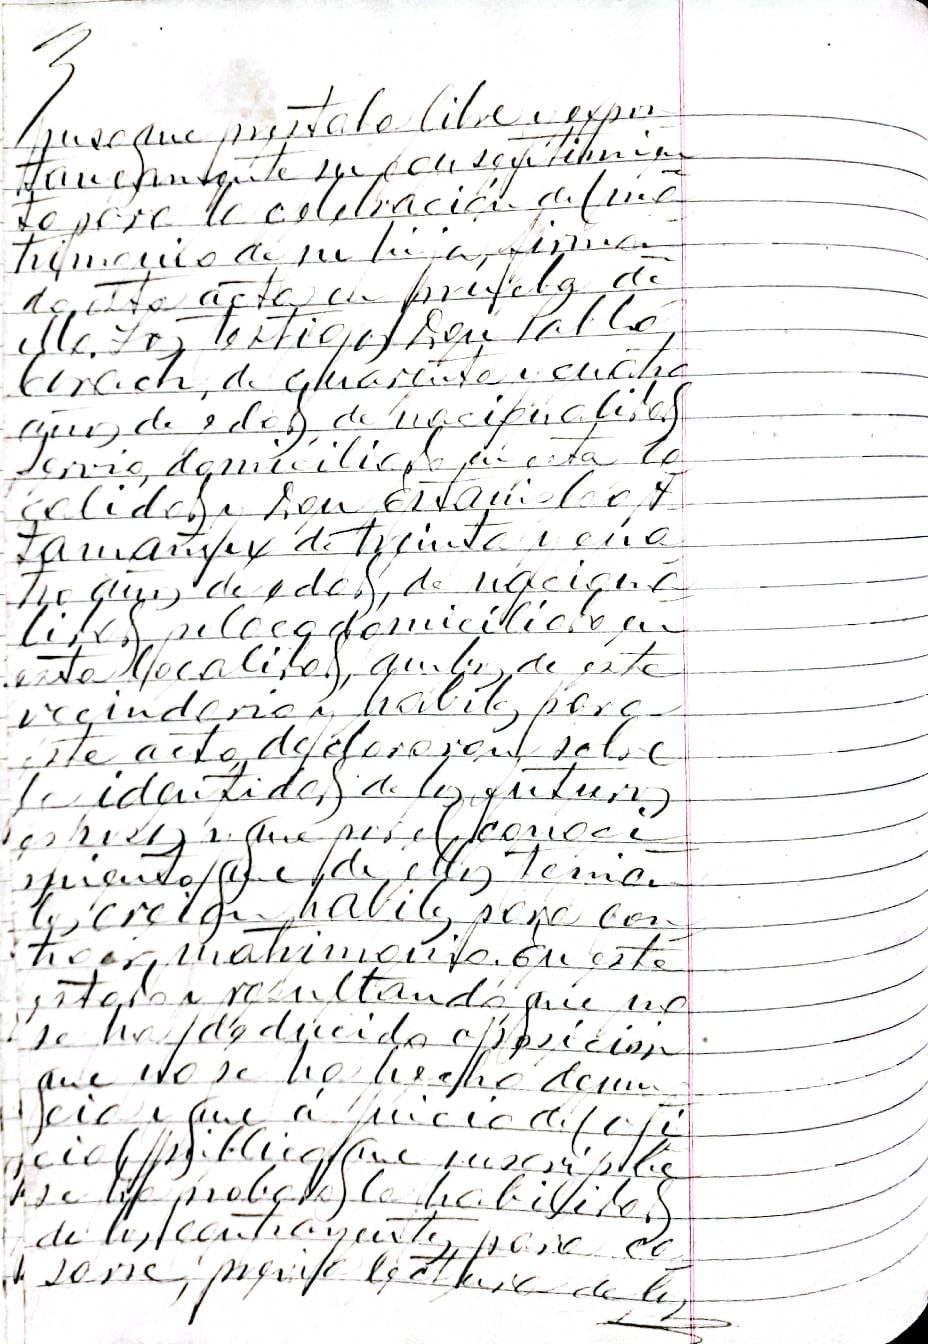 3
puso que prestaba libre y expon
taneamente su consentimien
to para la celebracion del ma
trimonio de su hija, firman
do esta acta en prueba de
ello. Los testigos Don Pablo
de cuarenta y cuatro
años de edad, de nacionalidad
servio, domiciliado en esta lo
calidad y Don Estanislao
de treinta y cua
tro años de edad, de naciona
lidad polaca domiciliado en
esta localidad, ambos de este
vecindario y habiles para
este acto, declararon sobre
la identidad de los futuros
esposos y que por el conoci
miento que de ellos tenian
los creian habiles para con
traer matrimonio. En este
estado y resultando que no
se ha deducido oposicion
que no se ha hecho denun
cia y que á juicio del ofi
cial público que suscribe
se ha probado la habilidad
de los contrayentes para ca
sarse, previa lectura de los